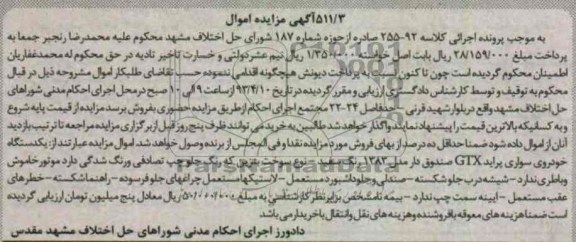 ۵۱۱/۳آگهی مزایده اموال
به موجب پرونده اجرائی کلاسه ۹۲-۲۵۵ صادره از حوزه شماره ۱۸۷ شورای حل اختلاف مشهد محکوم علیه محمدرضا رنجبر جمعا به
پرداخت مبلغ ۲۸/۱۵۹/۰۰۰ ریال بابت اصل خواسته ریال نیم عشر دولتی و خسارت تاخیر تادیه در حق محکوم له محمد غفاریان
اطمینان محکوم گردیده است چون تا کنون نسبت به پرداخت دیونش هیچگونه اقدامی ننموده حسب تقاضای طلبکار اموال مشروحه ذیل در قبال
محکوم به توقیف و توسط کارشناس دادگستری ارزیابی و مقرر گردیده در تاریخ ۹۳/۴/۱۰ از ساعت ۹ الی ۱۰ صبح در محل اجرای احکام مدنی شوراهای
حل اختلاف مشهد واقع در بلوار شهید قرنی - حدفاصل ۲۴-۲۲ مجتمع اجرای احکام از طریق مزایده حضوری بفروش برسد مزایده از قیمت پایه شروع
و به کسانیکه بالاترین قیمت را پیشنهاد نمایند واگذار خواهد شد طالبین به خرید می توانند ظرف پنج روز قبل از برگزاری مزایده مراجعه تا ترتیب بازدید
آنان از اموال داده شود ضمنا حداقل ده درصد از بهای فروش مورد مزایده نقدا و فی المجلس از برنده وصول خواهد شد. اموال مزایده عبارتند از: یکدستگاه
خودروی سواری پراید GTX صندوق دار مدل ۱۳۸۳ رنگ سفید - نوع سوخت بنزین که رنگ جلو چپ تصادفی و رنگ شدگی دارد موتور خاموش
و باطری ندارد - شیشه درب جلو شکسته - صندلی و جلو داشبورد مستعمل - لاستیکها مستعمل چراغهای جلو فرسوده - راهنما شکسته - خطرهای
عقب مستعمل - آیینه سمت چپ ندارد - بیمه نامه مشخص برابر نظر کارشناسی به مبلغ ۵۰/۰۰۰/۰۰۰ ریال معادل پنج میلیون تومان ارزیابی گردیده
است ضمنا هزینه های معوقه با فروشنده و هزینه های نقل و انتقال با خریدار می باشد
دادورز اجرای احکام مدنی شوراهای حل اختلاف مشهد مقدس